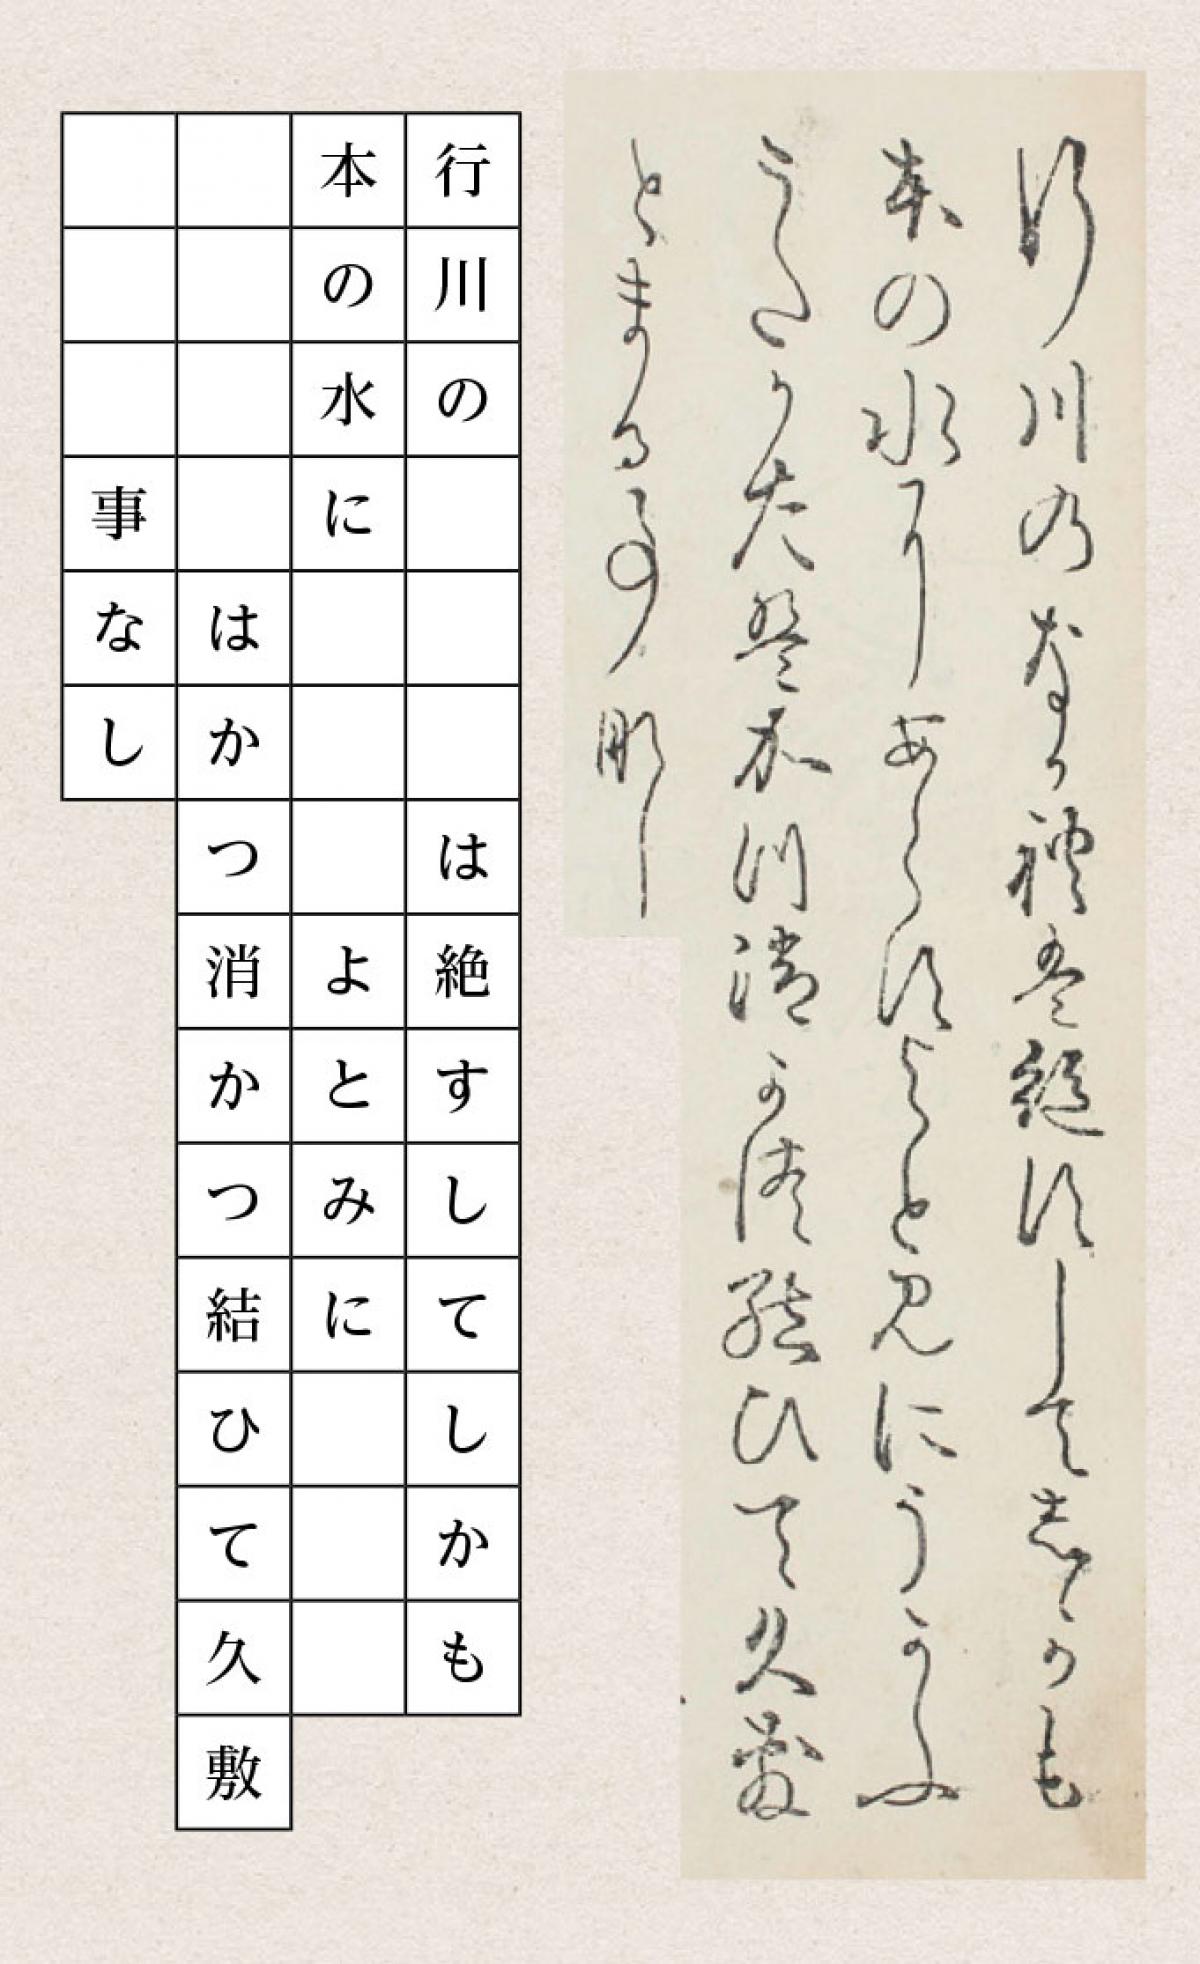 行川のなかれは絶すしてしかも
本の水にあらすよとみにうかふ
うたかたはかつ消かつ結ひて久敷
とまる事なし
行川の　　　は絶すしてしかも
本の水に　　　よとみに
はかつ消かつ結ひて久敷
事なし